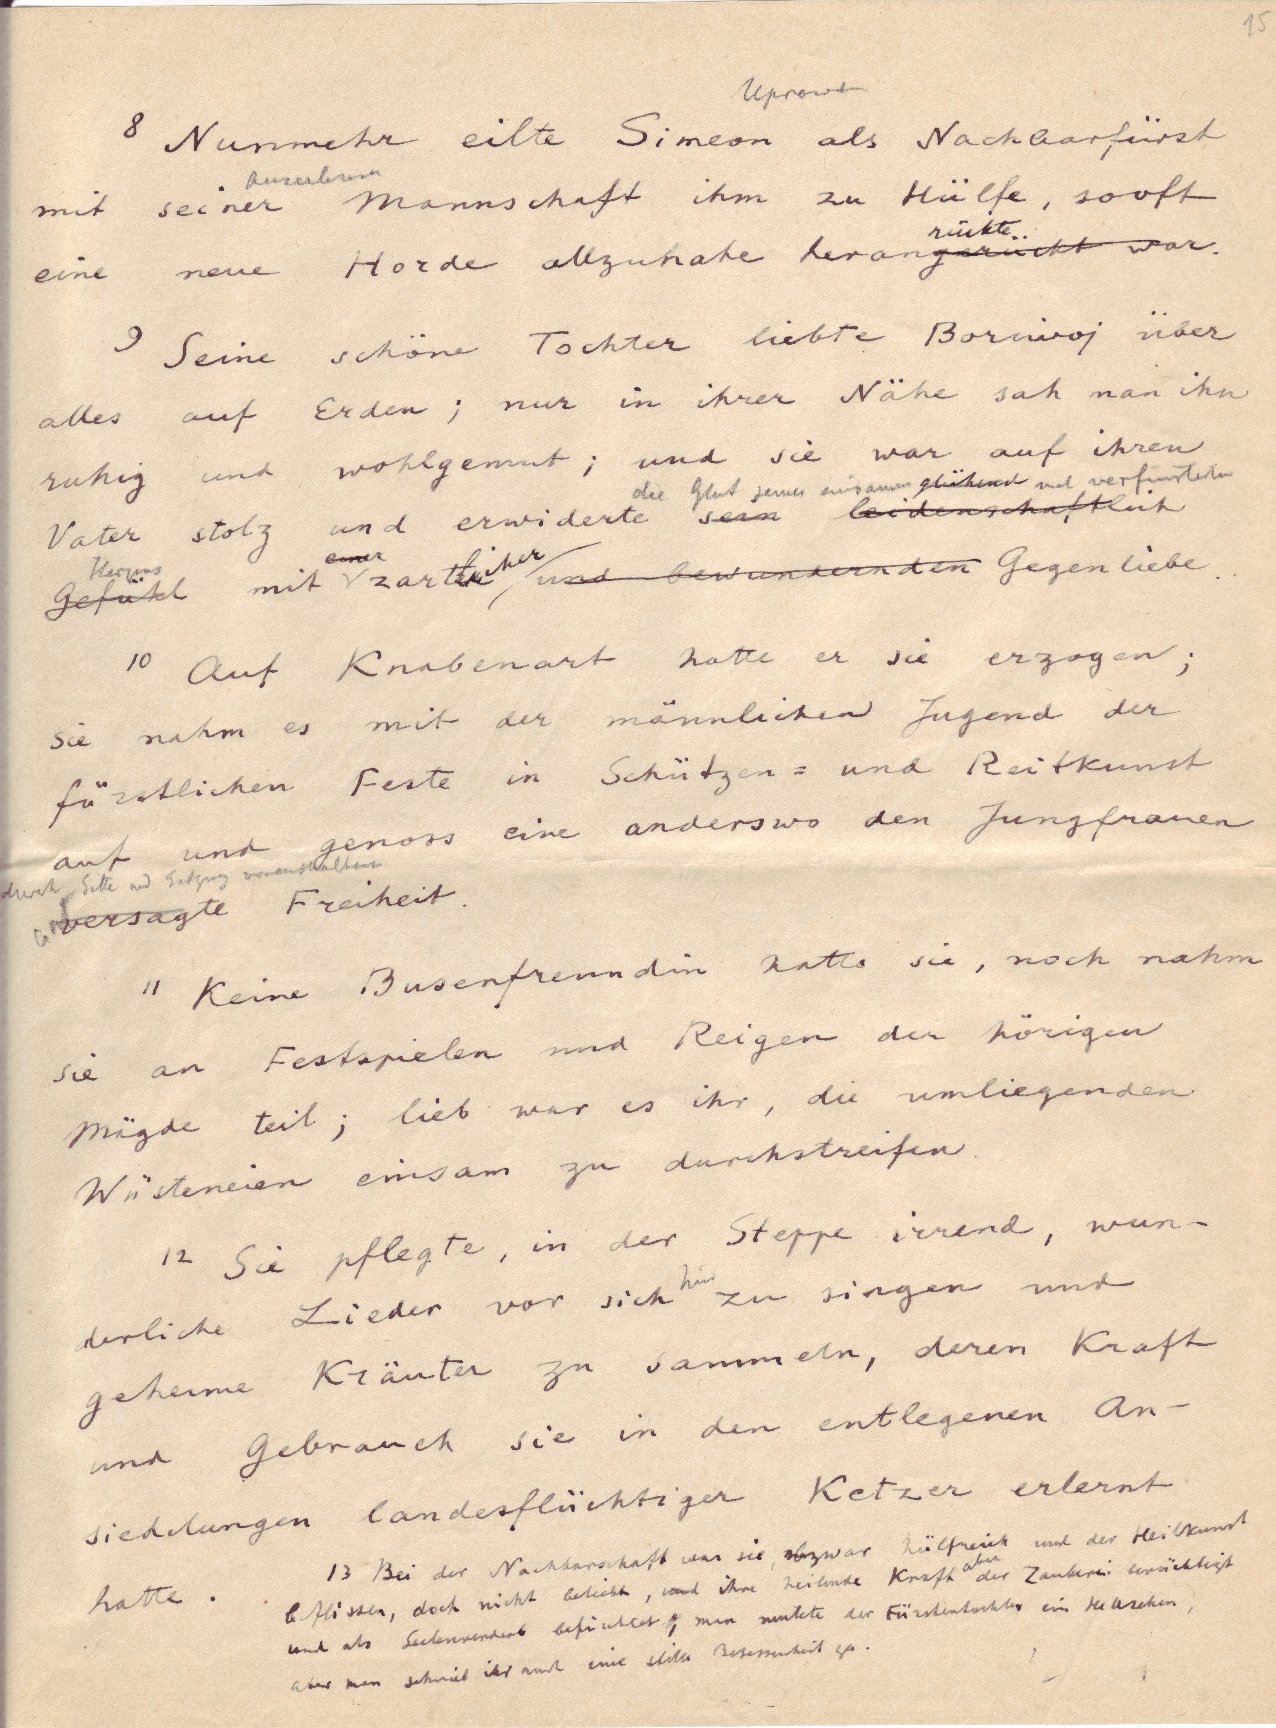 15
Uprawda
8 Nunmehr eilte Simeon als Nachbarfürst
auserlesenen
mit seiner Mannschaft ihm zu Hülfe, sooft
rückte.
eine neue Horde allzunahe herangerückt war.
9 Seine schöne Tochter liebte Boriwoj über
alles auf Erden; nur in ihrer Nähe sah man ihn
ruhig und wohlgemut; und sie war auf ihren
die Glut seines einsamen glühend und verfinsterten
Vater stolz und erwiderte sein leidenschaftlich
Herzens einer
Gefühl mit zärtlicher und bewundernden Gegenliebe.
10 Auf Knabenart hatte er sie erzogen;
sie nahm es mit der männlichen Jugend der
fürstlichen Feste in Schützen= und Reitkunst
auf und genoss eine anderswo den Jungfrauen
durch Sitte und Satzung vorenthaltene
versagte Freiheit.
11 Keine Busenfreundin hatte sie, noch nahm
sie an Festspielen und Reigen der hörigen
Mägde teil; lieb war es ihr, die umliegenden
Wüsteneien einsam zu durchstreifen.
12 Sie pflegte, in der Steppe irrend, wun-
hin
derliche Lieder vor sich zu singen und
geheime Kräuter zu sammeln, deren Kraft
und Gebrauch sie in den entlegenen An-
siedelungen landesflüchtiger Ketzer erlernt
hatte.
13 Bei der Nachbarschaft war sie, obzwar hülfreich und der Heilkunst
beflissen, doch nicht beliebt, und ihre heilende Kraft aber der Zauberei berüchtigt
und als befürchtet; man mutete der Fürstentochter ein Hellsehen,
aber man schrieb ihr auch eine stille Besessenheit zu.